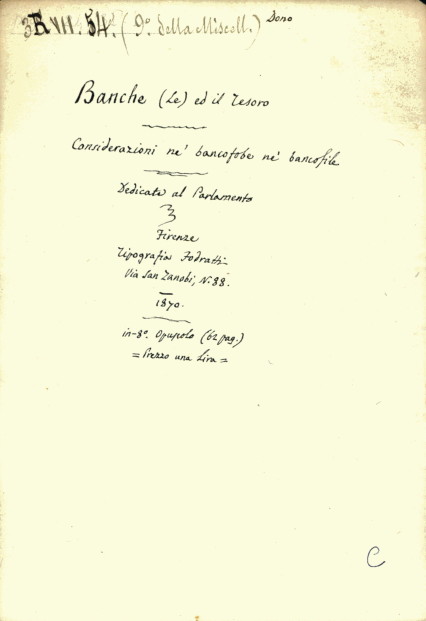 3R VII. 54. (9º. della Miscell.) Dono
Banche (Le) ed il Tesoro
Considerazioni nè bancofobe nè bancofile
Dedicate al Parlamento
Firenze
Tipografia Fodratti
Via San Zanobi, N. 88.
1870.
in-8º. Opuscolo (62 pag.)
= Prezzo una Lira =
C